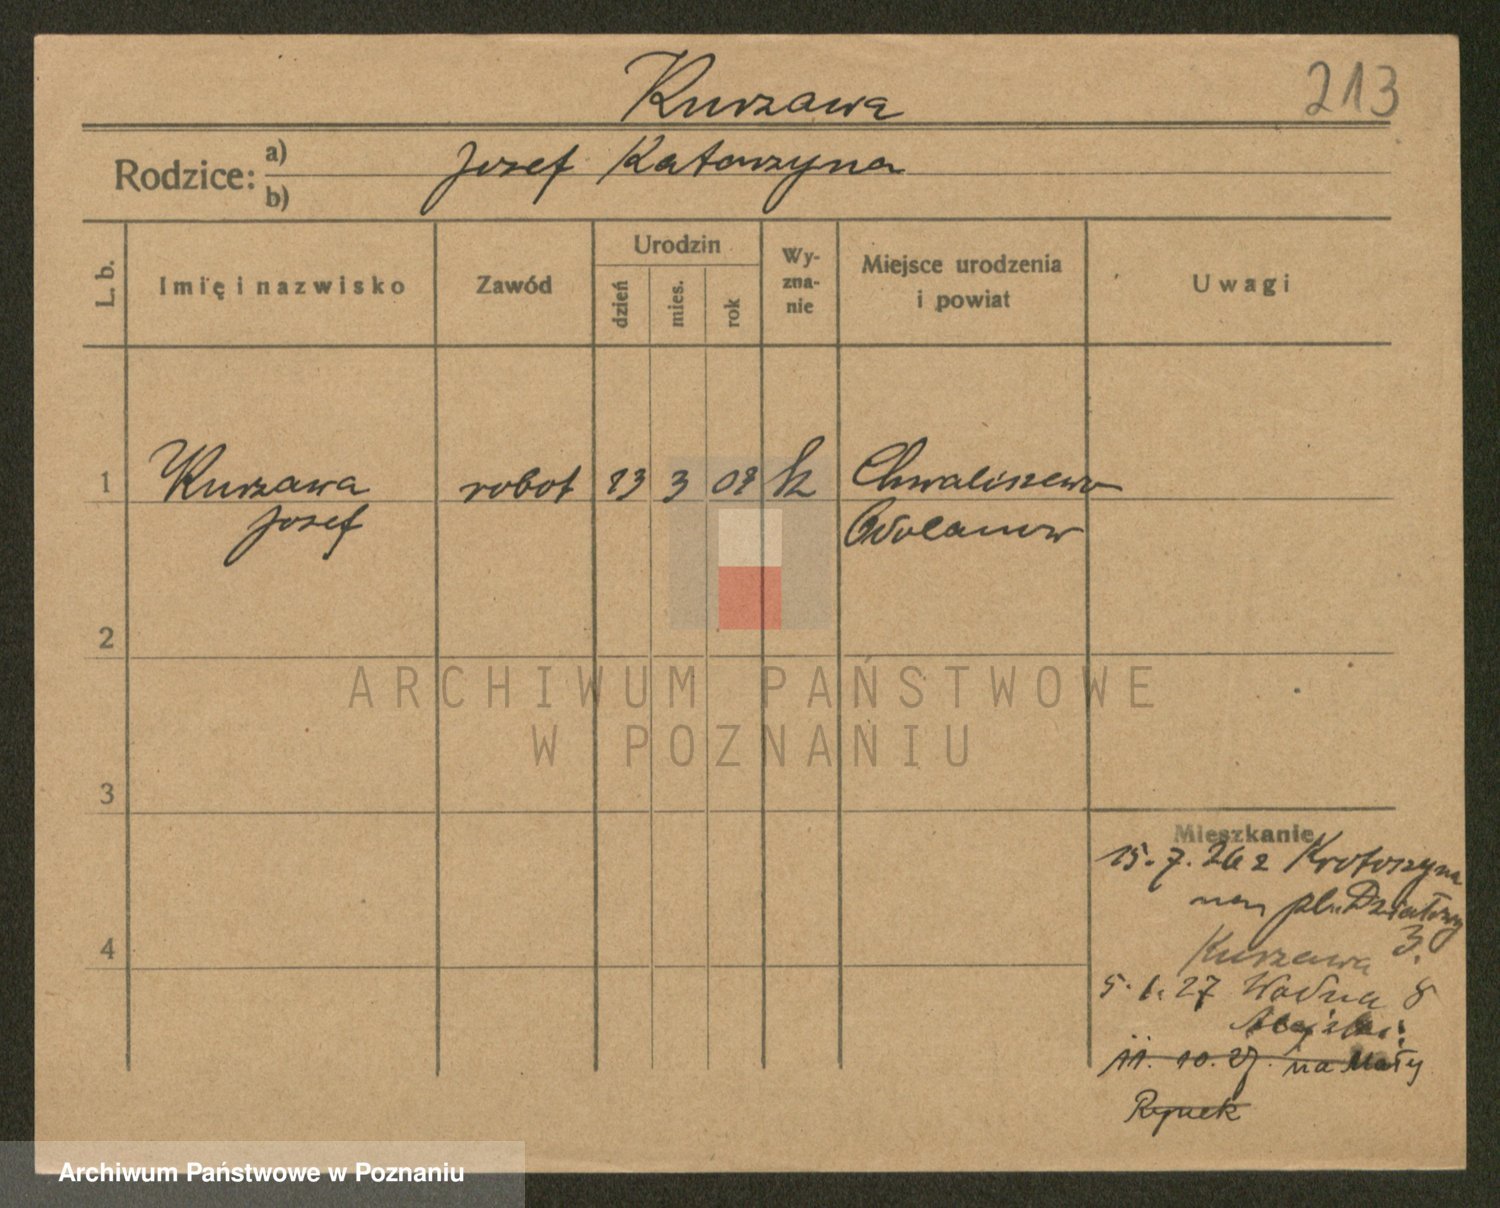 Kurzawa
213
Rodzice: a) Josef Katarzyna
b)
L. b.
Imię i nazwisko
Zawód
Urodzin
dzień
mies.
rok
Wy-
zna-
nie
Miejsce urodzenia
i powiat
Uwagi
1 Kurzawa robot 3 k Chwaliszewo
Josef Odolanow
2
ARCHIWUM PAŃSTWOWE
W POZNANIU
3
Mieszkanie
15. 7. 26 z Krotoszyna
na pl. Działowy
Kurzawa 3.
4
5. 1. 27 Wodna 8
11. 10. 27. na Mały
Rynek
Archiwum Państwowe w Poznaniu